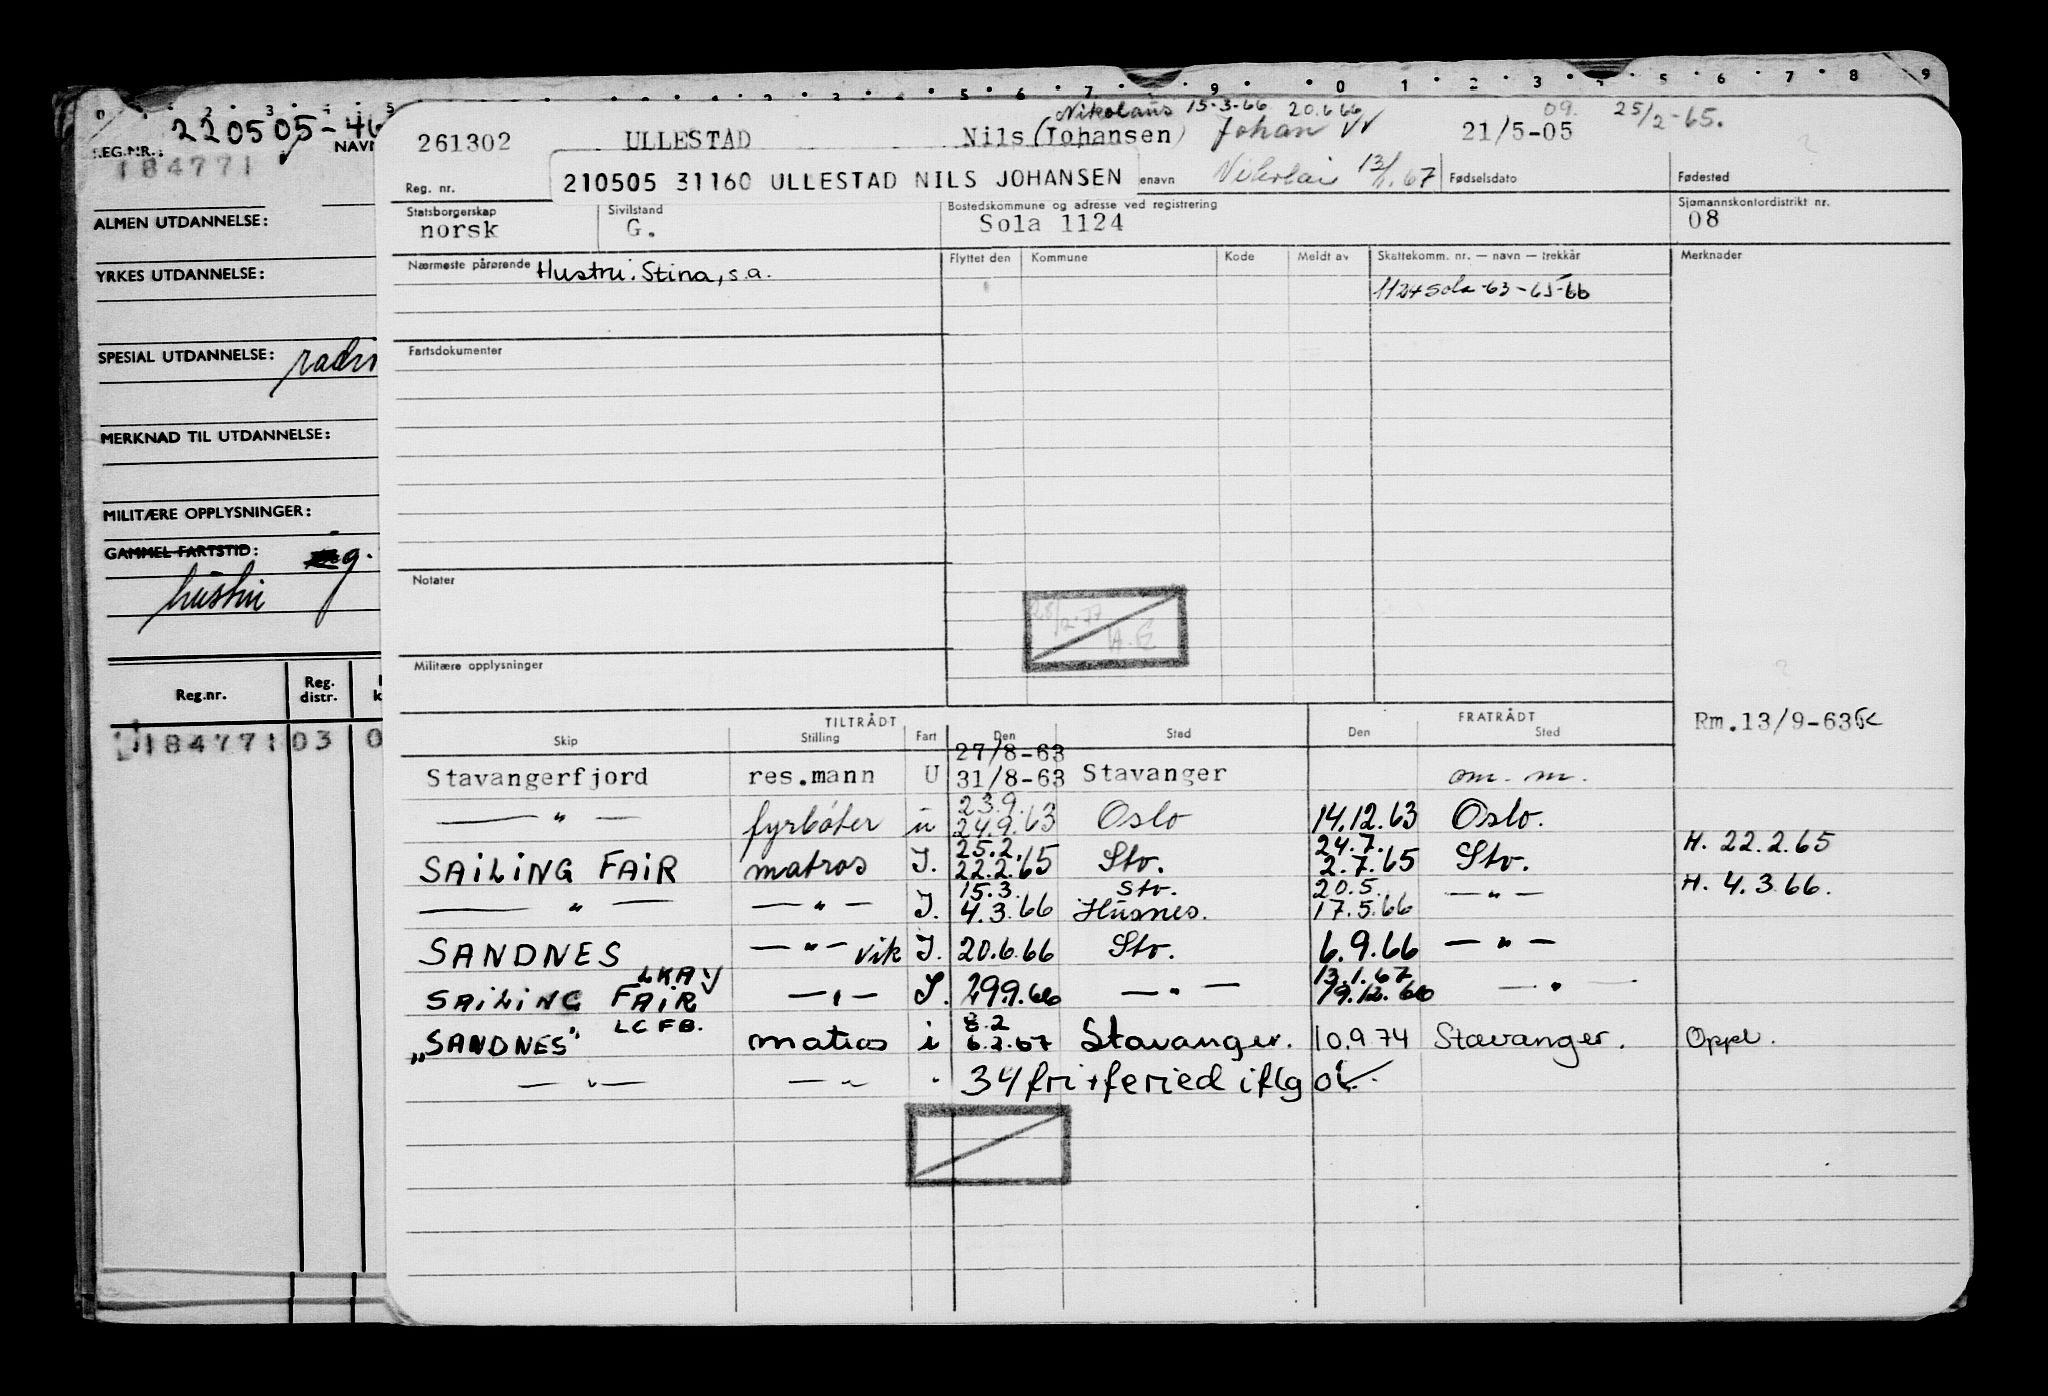 220505-46
REG.NR.: NAVN
184771
ALMEN UTDANNELSE:
YRKES UTDANNELSE:
SPESIAL UTDANNELSE:
MERKNAD TIL UTDANNELSE:
MILITÆRE OPPLYSNINGER:
GAMMEL FARTSTID: g.
Reg.nr. Reg. distr.
184771 03 0
Nikolaus 15-3-66 20.6.66 09. 25/2-65.
261302 ULLESTAD Nils (Johansen) Johan VV 21/5-05
210505 31160 ULLESTAD NILS JOHANSEN
Nikolai 13/1.67
Reg. nr. enavn Fødselsdato Fødested
Statsborgerskap Sivilstand Bostedskommune og adresse ved registrering Sjømannskontordistrikt nr.
norsk G. Sola 1124 08
Nærmeste pårørende Hustru: Stina, s.a. Flyttet den Kommune Kode Meldt av Skattekomm. nr. — navn — trekkår Merknader
1124 Sola -63-65-66
Fartsdokumenter
Notater
28/2-77
H.E
Militære opplysninger
TILTRÅDT FRATRÅDT Rm.13/9-63
Skip Stilling Fart Den Sted Den Sted
27/8-63
Stavangerfjord res.mann U 31/8-63 Stavanger om. m.
23.9.
— " — fyrbøter u 24.9.63 Oslo 14.12.63 Oslo.
25.2. 24.7. H. 22.2.65
SAILING FAIR matros I. 22.2.65 Stv. 2.7.65 Stv.
15.3. Stv. 20.5. H. 4.3.66.
— " — — " — I. 4.3.66 Husnes. 17.5.66 — " —
SANDNES — " — vik I. 20.6.66 Stv. 6.9.66 — " —
LKAV 13.1.67
SAILING FAIR — " — I. 29.9.66 — " — 19.12.66 — " —
LCFB. 8.2
„SANDNES" matros i 6.2.67 Stavanger. 10.9.74 Stavanger. Oppl.
— " — — " — 34 fri + feried iflg ok.